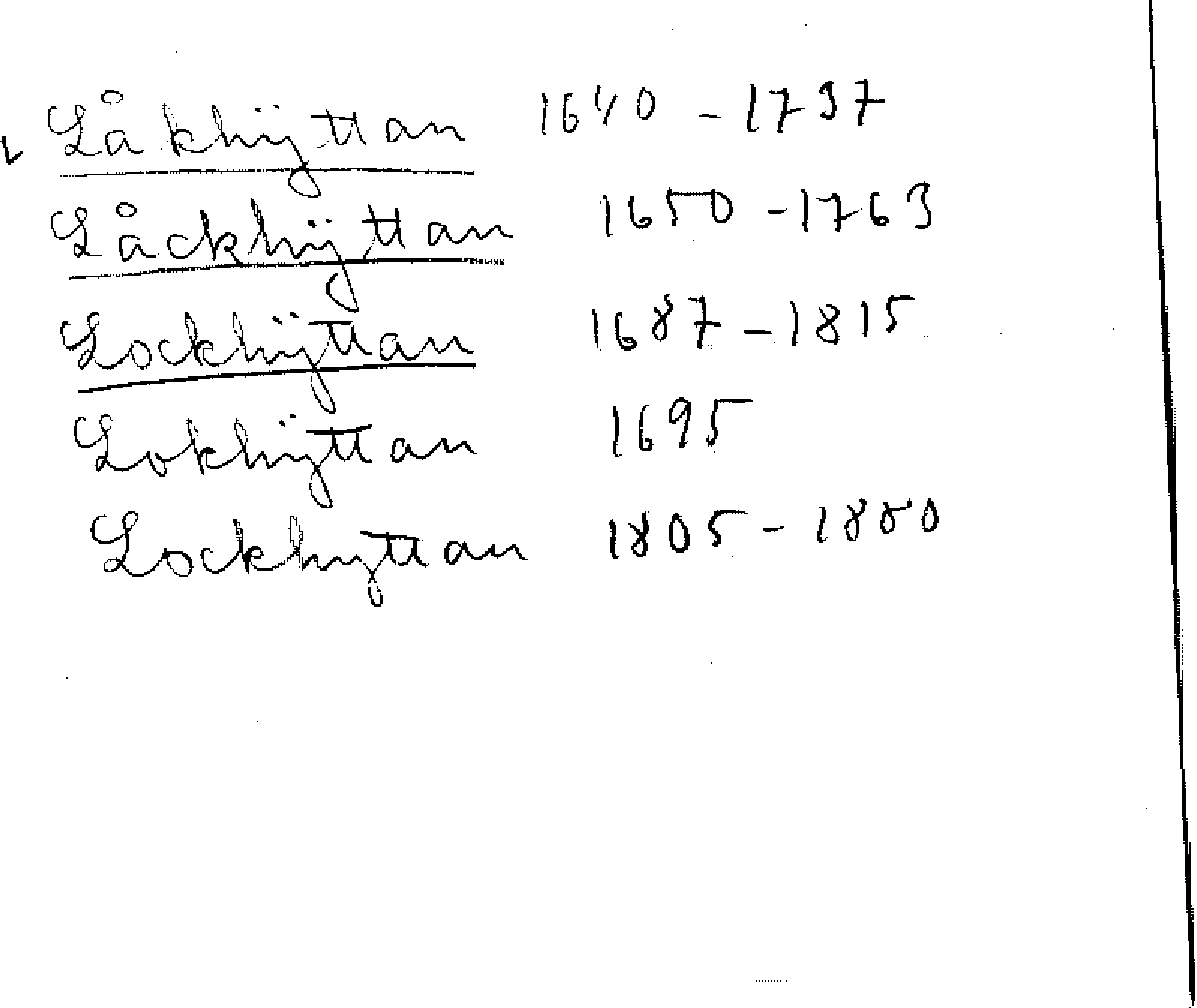 Låkhÿttan 1640 - 1737
Låckhÿttan 1650 - 1763
Lockhÿttan 1687 - 1815
Lokhÿttan 1695
Lockhyttan 1805 -